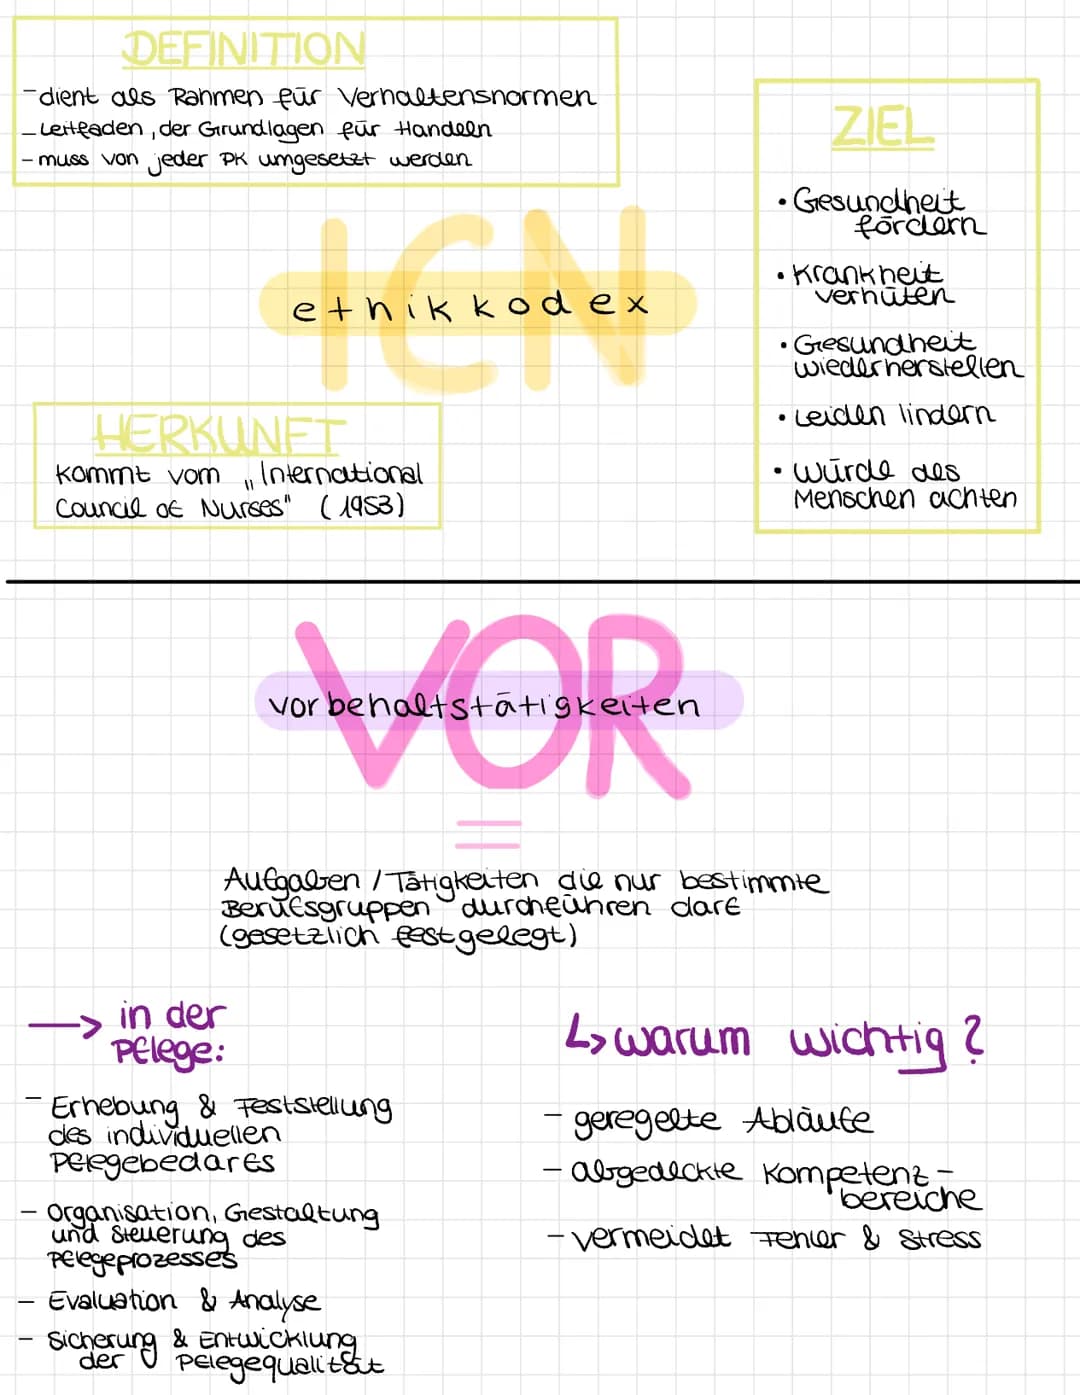 DEFINITION
- dient als Rahmen für Verhaltensnormen
- Leitfaden, der Grundlagen für Handeln
- muss von jeder PK umgesetzt werden
ICN
ethikkodex
HERKUNFT
kommt vom „International
Council of Nurses" (1953)
ZIEL
• Gesundheit
fördern
• Krankheit
verhüten
• Gesundheit
wiederherstellen
• Leiden lindern
• Würde des
Menschen achten
VOR
vorbehaltstätigkeiten
=
Aufgaben / Tätigkeiten die nur bestimmte
Berufsgruppen durchführen darf
(gesetzlich festgelegt)
→ in der
Pflege:
- Erhebung & Feststellung
des individuellen
Pflegebedarfs
- Organisation, Gestaltung
und Steuerung des
Pflegeprozesses
- Evaluation & Analyse
- Sicherung & Entwicklung
der Pflegequalität
↳ warum wichtig?
- geregelte Abläufe
- abgedeckte Kompetenz-
bereiche
- vermeidet Fehler & Stress